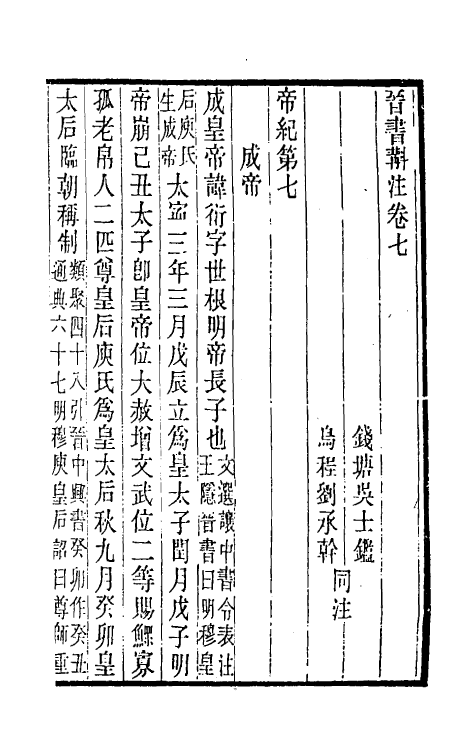 晉書斠注卷七
錢塘吳士鑑
烏程劉承幹
同注
帝紀第七
成帝
成皇帝諱衍字世根明帝長子也文選讓中書令表注王隱晉書曰明穆皇
后庾氏生成帝太寧三年三月戊辰立爲皇太子閏月戊子明
帝崩己丑太子卽皇帝位大赦增文武位二等賜鰥寡
孤老帛人二匹尊皇后庾氏爲皇太后秋九月癸卯皇
太后臨朝稱制類聚四十八引晉中興書癸卯作癸丑通典六十七明穆庾皇后詔曰尊師重